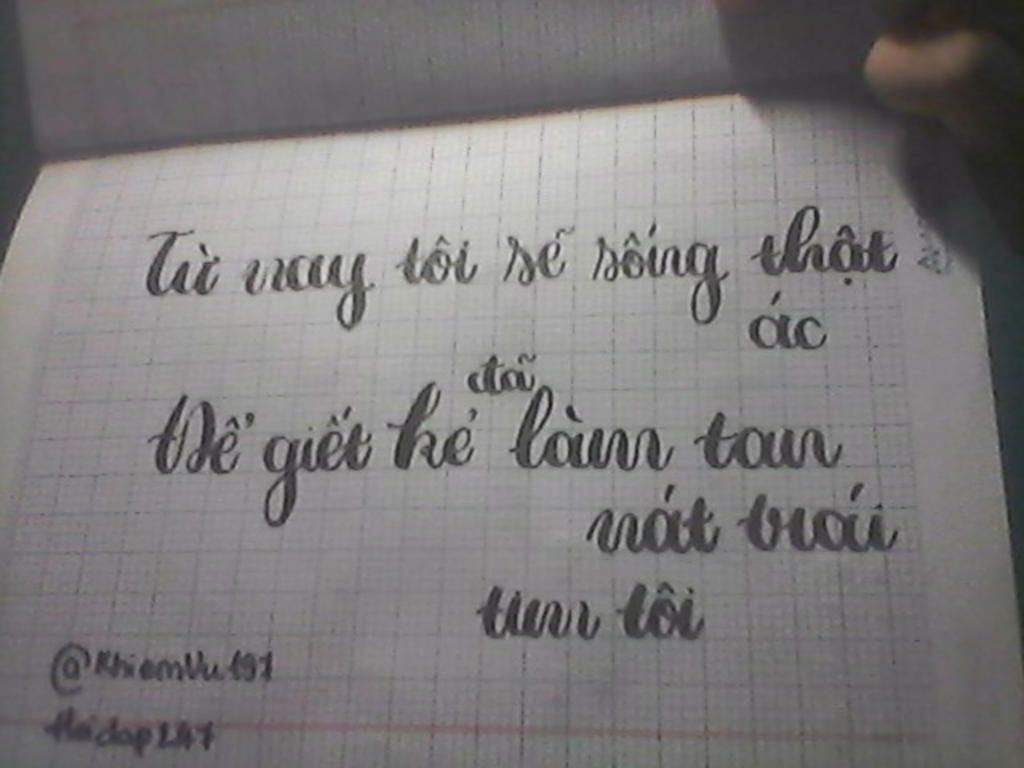 Từ nay tôi sẽ sống thật
ác
đã
Để giết kẻ làm tan
nát trái
tim tôi
@KhiemVu191
Hoidap247